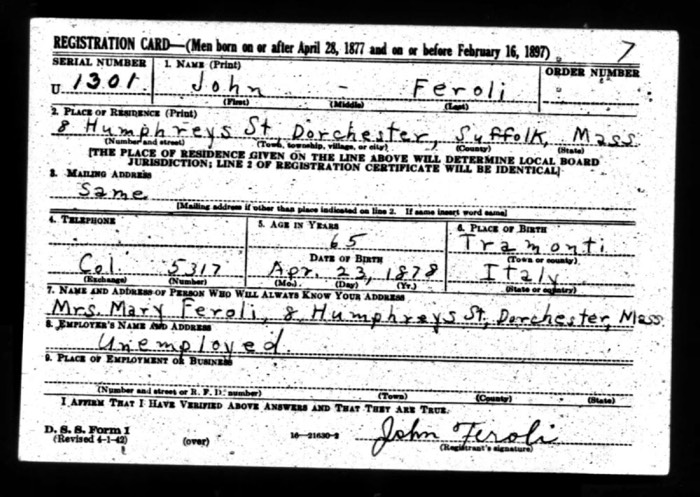 REGISTRATION CARD—(Men born on or after April 28, 1877 and on or before February 16, 1897) 7
SERIAL NUMBER 1. NAME (Print) ORDER NUMBER
U 1301 John - Feroli
(First) (Middle) (Last)
2. PLACE OF RESIDENCE (Print)
8 Humphreys St, Dorchester, Suffolk, Mass
(Number and street) (Town, township, village, or city) (County) (State)
[THE PLACE OF RESIDENCE GIVEN ON THE LINE ABOVE WILL DETERMINE LOCAL BOARD
JURISDICTION; LINE 2 OF REGISTRATION CERTIFICATE WILL BE IDENTICAL]
3. MAILING ADDRESS
Same
[Mailing address if other than place indicated on line 2. If same insert word same]
4. TELEPHONE 5. AGE IN YEARS 6. PLACE OF BIRTH
65 Tramonti
DATE OF BIRTH (Town or county)
Col. 5317 Apr. 23, 1878 Italy
(Exchange) (Number) (Mo.) (Day) (Yr.) (State or country)
7. NAME AND ADDRESS OF PERSON WHO WILL ALWAYS KNOW YOUR ADDRESS
Mrs. Mary Feroli, 8 Humphreys St, Dorchester, Mass
8. EMPLOYER'S NAME AND ADDRESS
Unemployed
9. PLACE OF EMPLOYMENT OR BUSINESS
(Number and street or R. F. D. number) (Town) (County) (State)
I AFFIRM THAT I HAVE VERIFIED ABOVE ANSWERS AND THAT THEY ARE TRUE.
D. S. S. Form 1
(Revised 4-1-42) (over) 16—21630-2 John Feroli
(Registrant's signature)